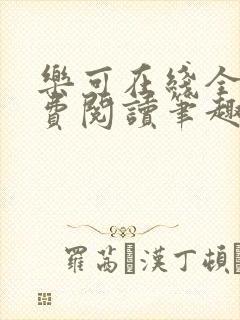 樂可在綫全
費閱讀筆趣
羅茜·漢丁頓·